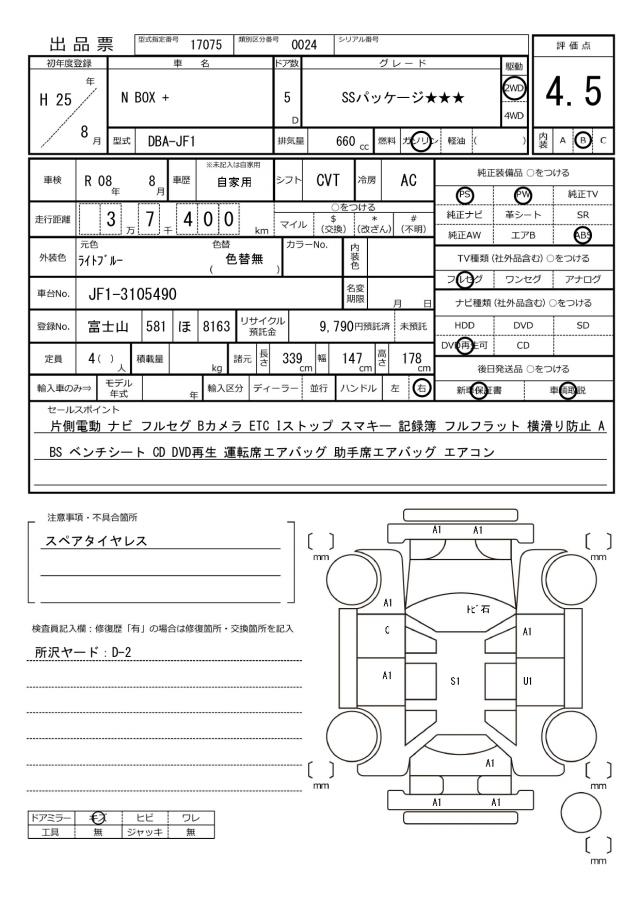 出品票 型式指定番号 17075 類別区分番号 0024 シリアル番号
評価点
4.5
内装 A B C
初年度登録 車名 ドア数 グレード 駆動
H 25 年 8 月
N BOX +
5 D
SSパッケージ★★★
2WD
4WD
型式 DBA-JF1 排気量 660 cc 燃料 ガソリン 軽油 ( )
車検 R 08 年 8 月 車歴 ※未記入は自家用 自家用 シフト CVT 冷房 AC
走行距離 3 万 7 千 4 0 0 km
○をつける
マイル $ (交換) * (改ざん) # (不明)
外装色 元色 ライトブルー 色替 ( 色替無 ) カラーNo. 内装色
車台No. JF1-3105490 名変期限 月 日
登録No. 富士山 581 ほ 8163 リサイクル預託金 9,790円預託済 未預託
定員 4( ) 人 積載量 kg 諸元 長さ 339 cm 幅 147 cm 高さ 178 cm
輸入車のみ⇒ モデル年式 年 輸入区分 ディーラー 並行 ハンドル 左 右
純正装備品 ○をつける
PS PW 純正TV
純正ナビ 革シート SR
純正AW エアB ABS
TV種類 (社外品含む) ○をつける
フルセグ ワンセグ アナログ
ナビ種類 (社外品含む) ○をつける
HDD DVD SD
DVD再生可 CD
後日発送品 ○をつける
新車保証書 車輌取説
セールスポイント
片側電動 ナビ フルセグ Bカメラ ETC Iストップ スマキー 記録簿 フルフラット 横滑り防止 A
BS ベンチシート CD DVD再生 運転席エアバッグ 助手席エアバッグ エアコン
注意事項・不具合箇所
スペアタイヤレス
検査員記入欄：修復歴「有」の場合は修復箇所・交換箇所を記入
所沢ヤード：D-2
ドアミラー キズ ヒビ ワレ
工具 無 ジャッキ 無
A1 A1
mm mm
A1 トビ石
C A1
A1 S1 U1
A1
mm mm
A1 A1
mm